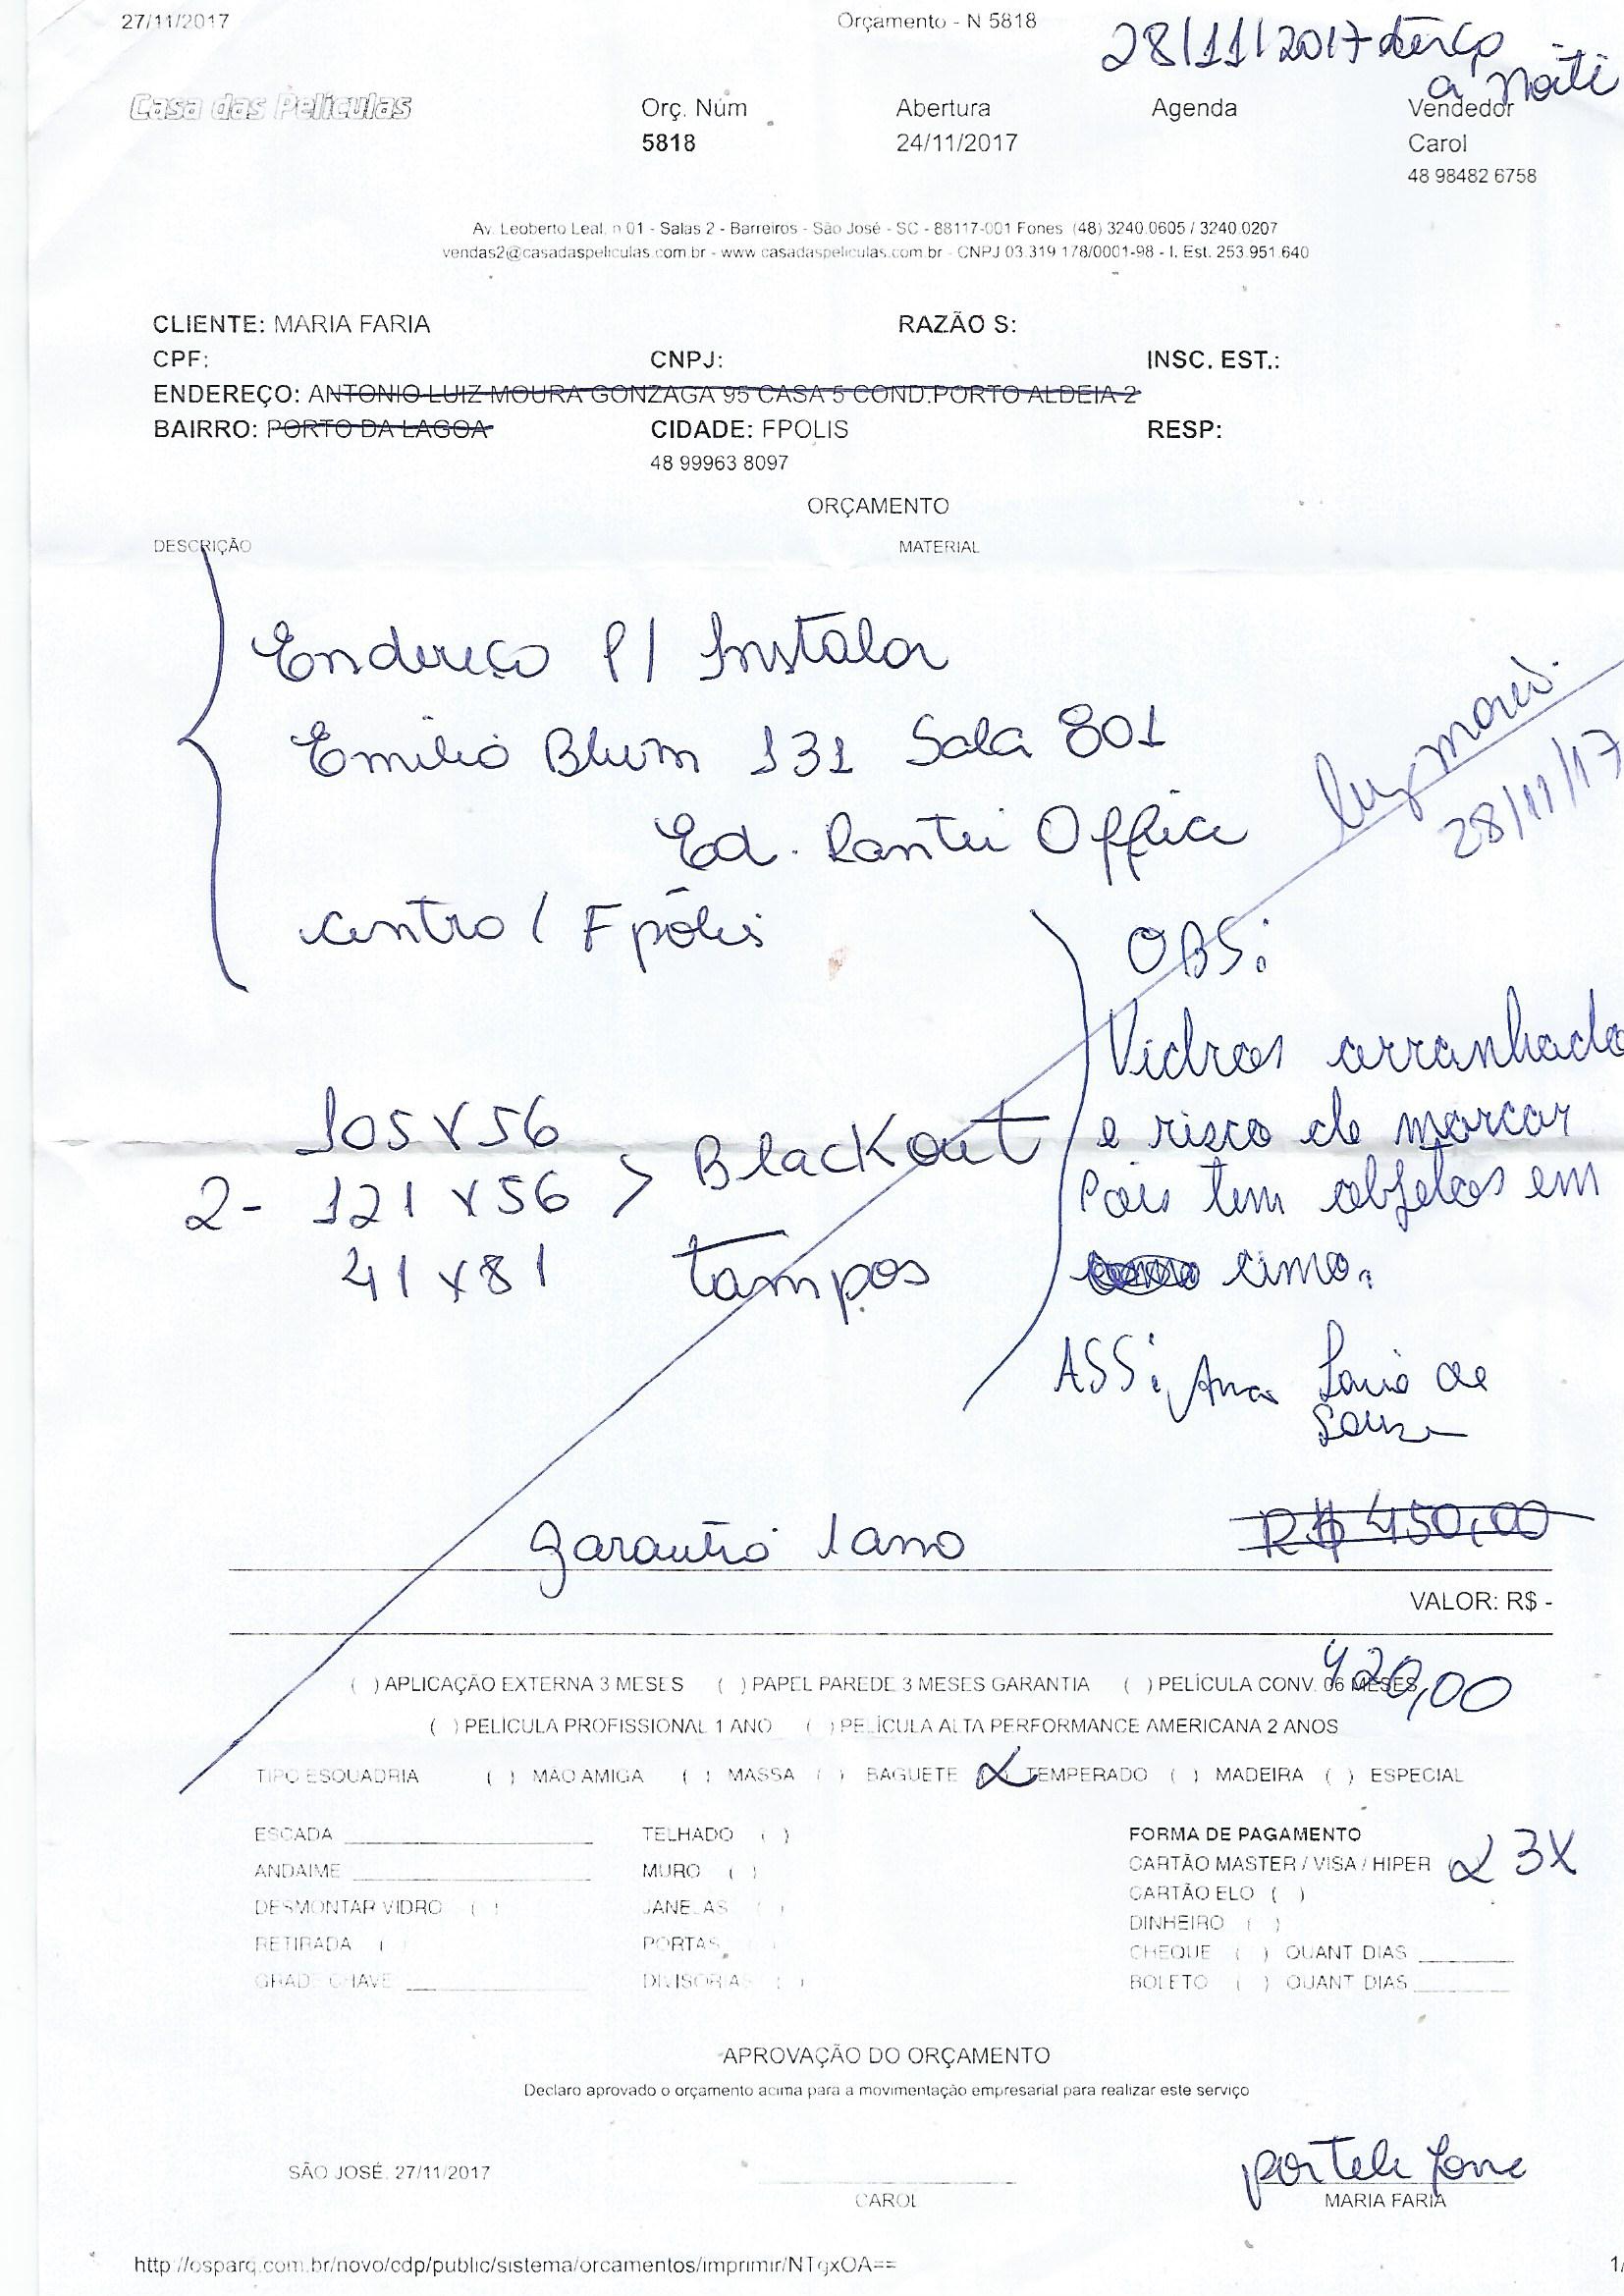 27/11/2017 Orçamento - N 5818
28/11/2017 terça
a noite
Casa das Películas Orç. Núm Abertura Agenda Vendedor
5818 24/11/2017 Carol
48 98482 6758
Av. Leoberto Leal, n 01 - Salas 2 - Barreiros - São José - SC - 88117-001 Fones (48) 3240.0605 / 3240.0207
vendas2@casadaspeliculas.com.br - www.casadaspeliculas.com.br - CNPJ 03.319.178/0001-98 - I. Est. 253.951.640
CLIENTE: MARIA FARIA RAZÃO S:
CPF: CNPJ: INSC. EST.:
ENDEREÇO: ANTONIO LUIZ MOURA GONZAGA 95 CASA 5 COND.PORTO ALDEIA 2
BAIRRO: PORTO DA LAGOA CIDADE: FPOLIS RESP:
48 99963 8097
ORÇAMENTO
DESCRIÇÃO MATERIAL
Endereço P/ Instalar
Emilio Blum 131 Sala 801
Ed. Office
centro / Fpólis
28/11/17
OBS:
Vidros arranhado
e risco de marcar
Pois tem objetos em
cima.
105 x 56
2- 121 x 56 > Blackout
41 x 81 tampos
ASS: Ana de
Souza
garantia 1 ano R$ 450,00
VALOR: R$ -
420,00
( ) APLICAÇÃO EXTERNA 3 MESES ( ) PAPEL PAREDE 3 MESES GARANTIA ( ) PELÍCULA CONV. 06 MESES
( ) PELÍCULA PROFISSIONAL 1 ANO ( ) PELÍCULA ALTA PERFORMANCE AMERICANA 2 ANOS
TIPO ESQUADRIA ( ) MÃO AMIGA ( ) MASSA ( ) BAGUETE (X) TEMPERADO ( ) MADEIRA ( ) ESPECIAL
ESCADA TELHADO ( ) FORMA DE PAGAMENTO
ANDAIME MURO ( ) CARTÃO MASTER / VISA / HIPER X 3X
DESMONTAR VIDRO ( ) JANELAS ( ) CARTÃO ELO ( )
DINHEIRO ( )
RETIRADA ( PORTAS CHEQUE ( ) QUANT DIAS
GRADE CHAVE DIVISORIAS ( ) BOLETO ( ) QUANT DIAS
APROVAÇÃO DO ORÇAMENTO
Declaro aprovado o orçamento acima para a movimentação empresarial para realizar este serviço
SÃO JOSÉ, 27/11/2017 por
CAROL MARIA FARIA
http://osparq.com.br/novo/cdp/public/sistema/orcamentos/imprimir/NTgxOA== 1/